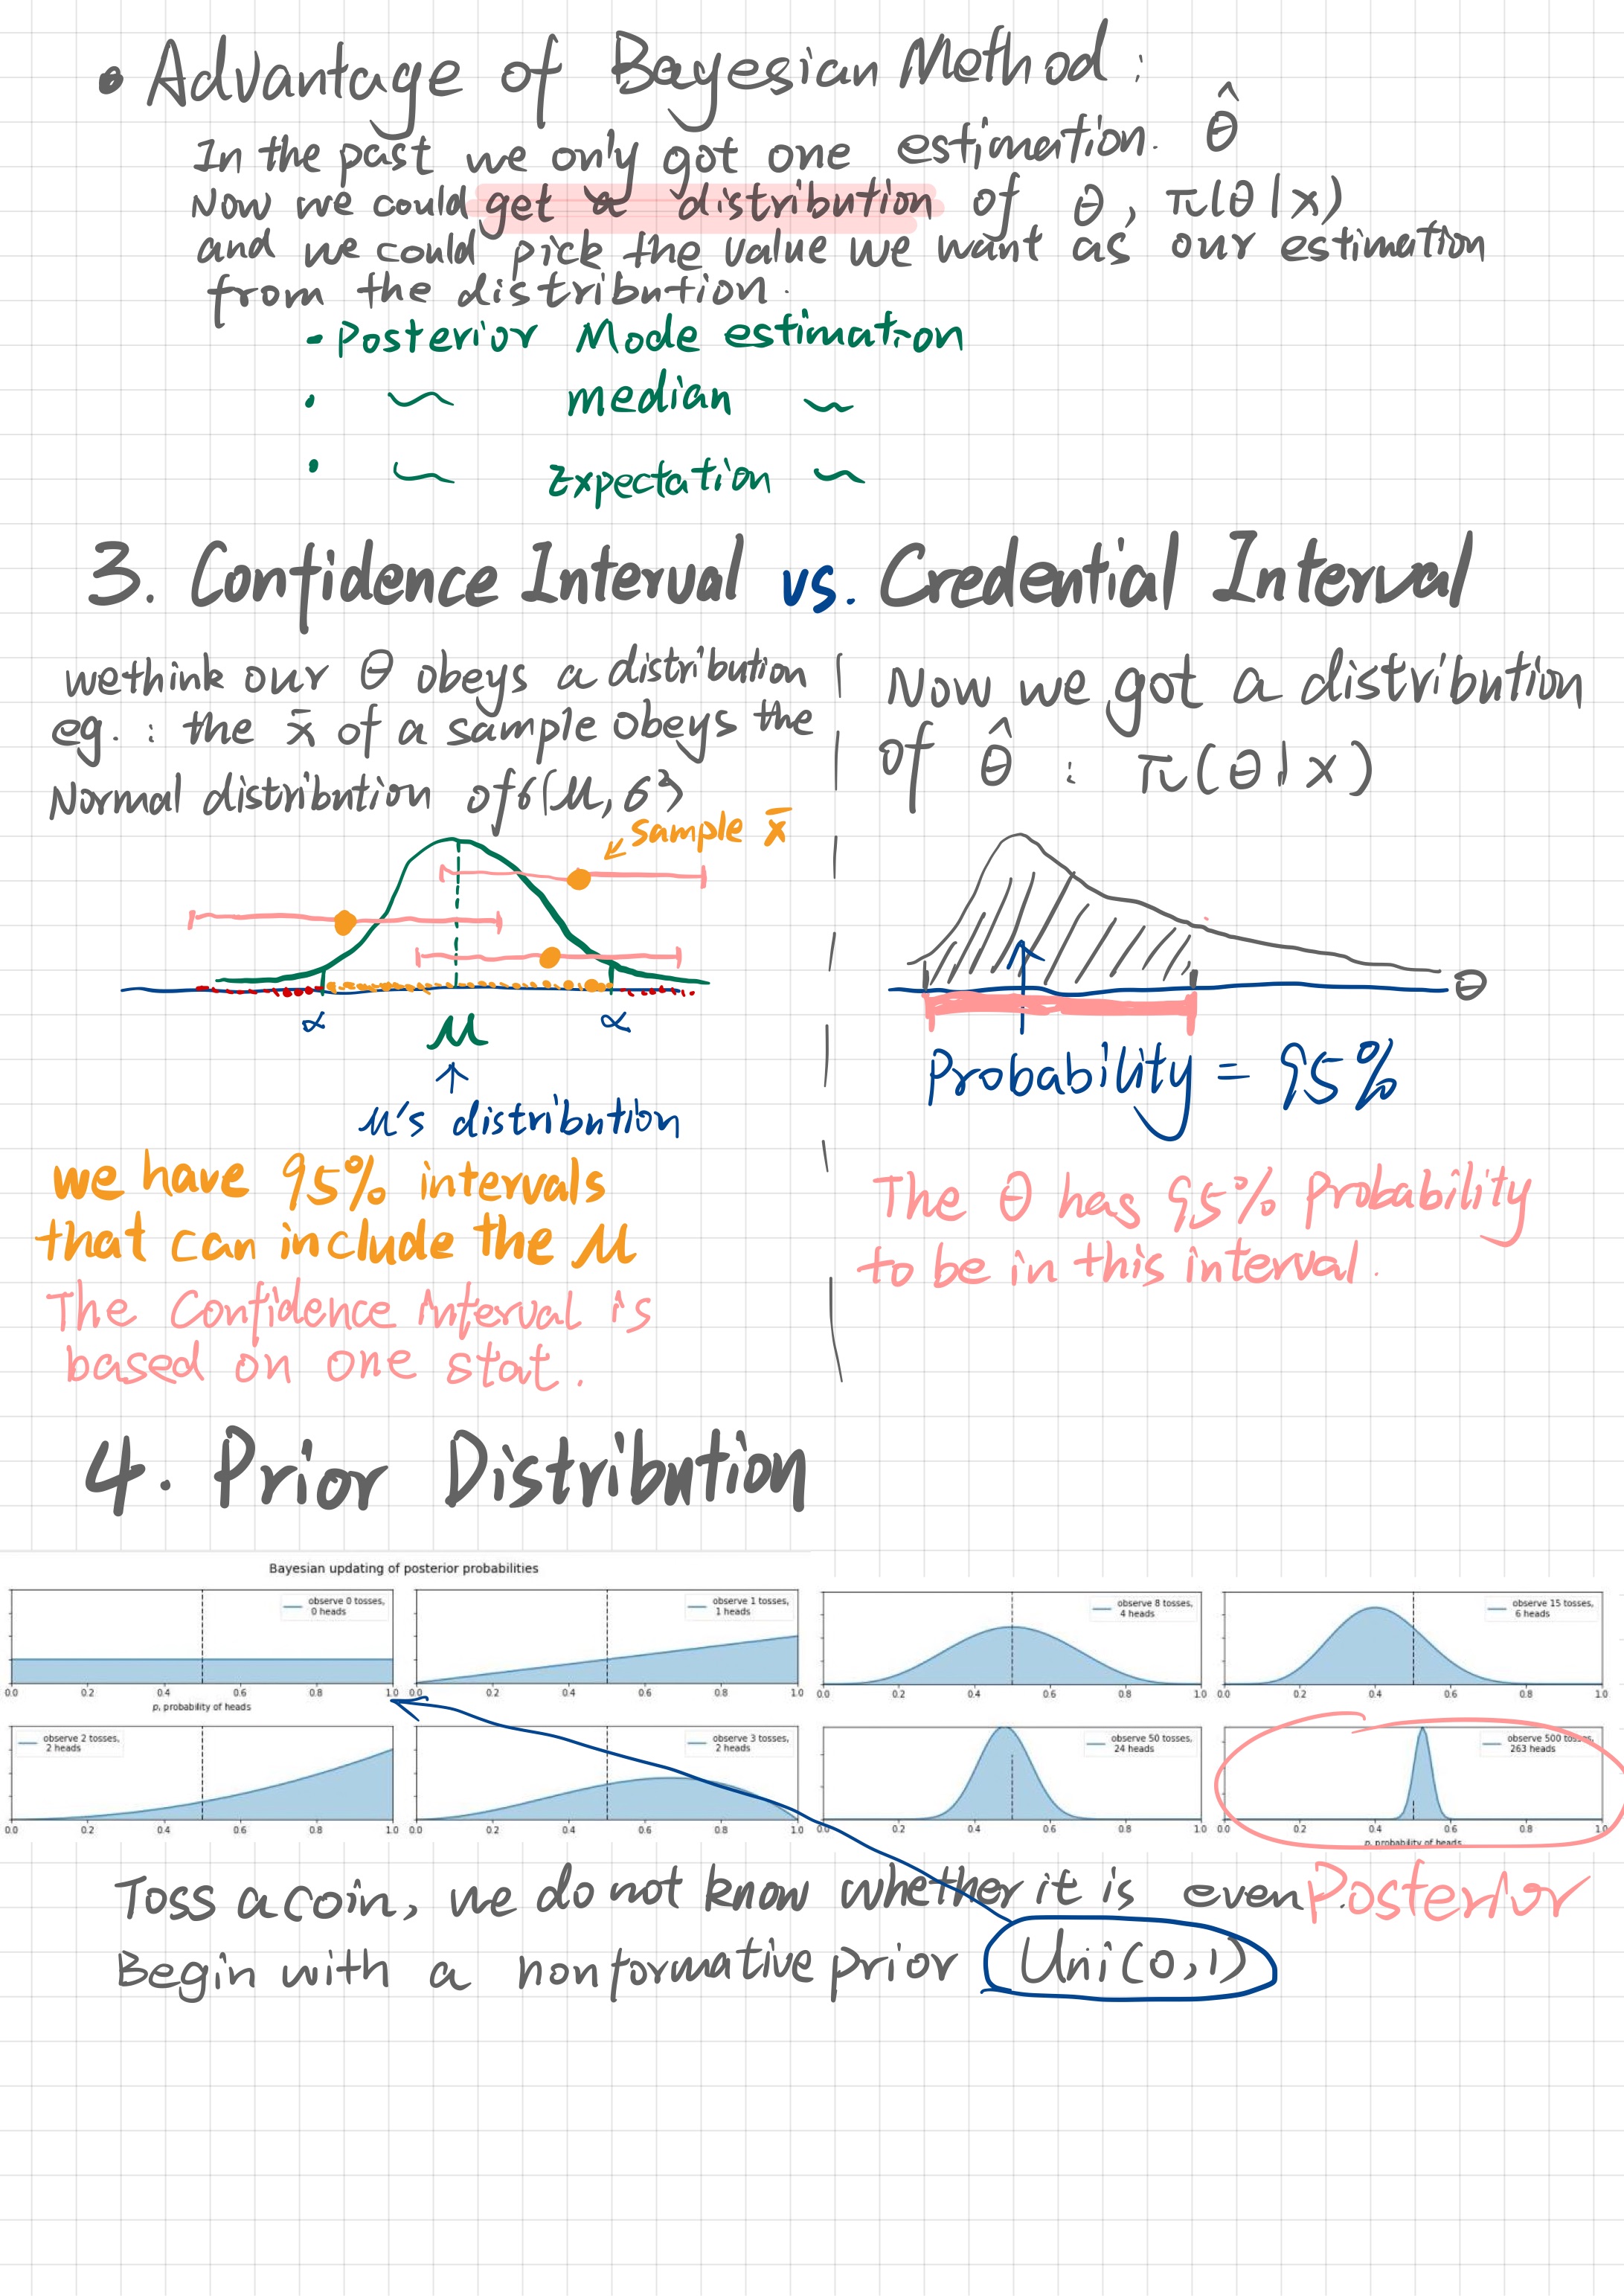 • Advantage of Bayesian Method :
In the past we only got one estimation. θ̂
Now we could get a distribution of θ, π(θ|x)
and we could pick the value we want as our estimation
from the distribution.
- Posterior Mode estimation
• ~ median ~
• ~ Expectation ~
3. Confidence Interval vs. Credential Interval
we think our θ obeys a distribution
eg. : the x̄ of a sample obeys the
Normal distribution of (μ, σ²)
sample x̄
α
μ
α
μ's distribution
we have 95% intervals
that can include the μ
The Confidence Interval is
based on one stat.
Now we got a distribution
of θ̂ : π(θ|x)
θ
Probability = 95%
The θ has 95% Probability
to be in this interval.
4. Prior Distribution
Bayesian updating of posterior probabilities
observe 0 tosses,
0 heads
0.0 0.2 0.4 0.6 0.8 1.0
p, probability of heads
observe 1 tosses,
1 heads
0.0 0.2 0.4 0.6 0.8 1.0
observe 8 tosses,
4 heads
0.0 0.2 0.4 0.6 0.8 1.0
observe 15 tosses,
6 heads
0.0 0.2 0.4 0.6 0.8 1.0
observe 2 tosses,
2 heads
0.0 0.2 0.4 0.6 0.8 1.0
observe 3 tosses,
2 heads
0.0 0.2 0.4 0.6 0.8 1.0
observe 50 tosses,
24 heads
0.0 0.2 0.4 0.6 0.8 1.0
observe 500 tosses,
263 heads
0.0 0.2 0.4 0.6 0.8 1.0
p, probability of heads
Toss a coin, we do not know whether it is even.
Posterior
Begin with a nonformative prior Uni(0,1)